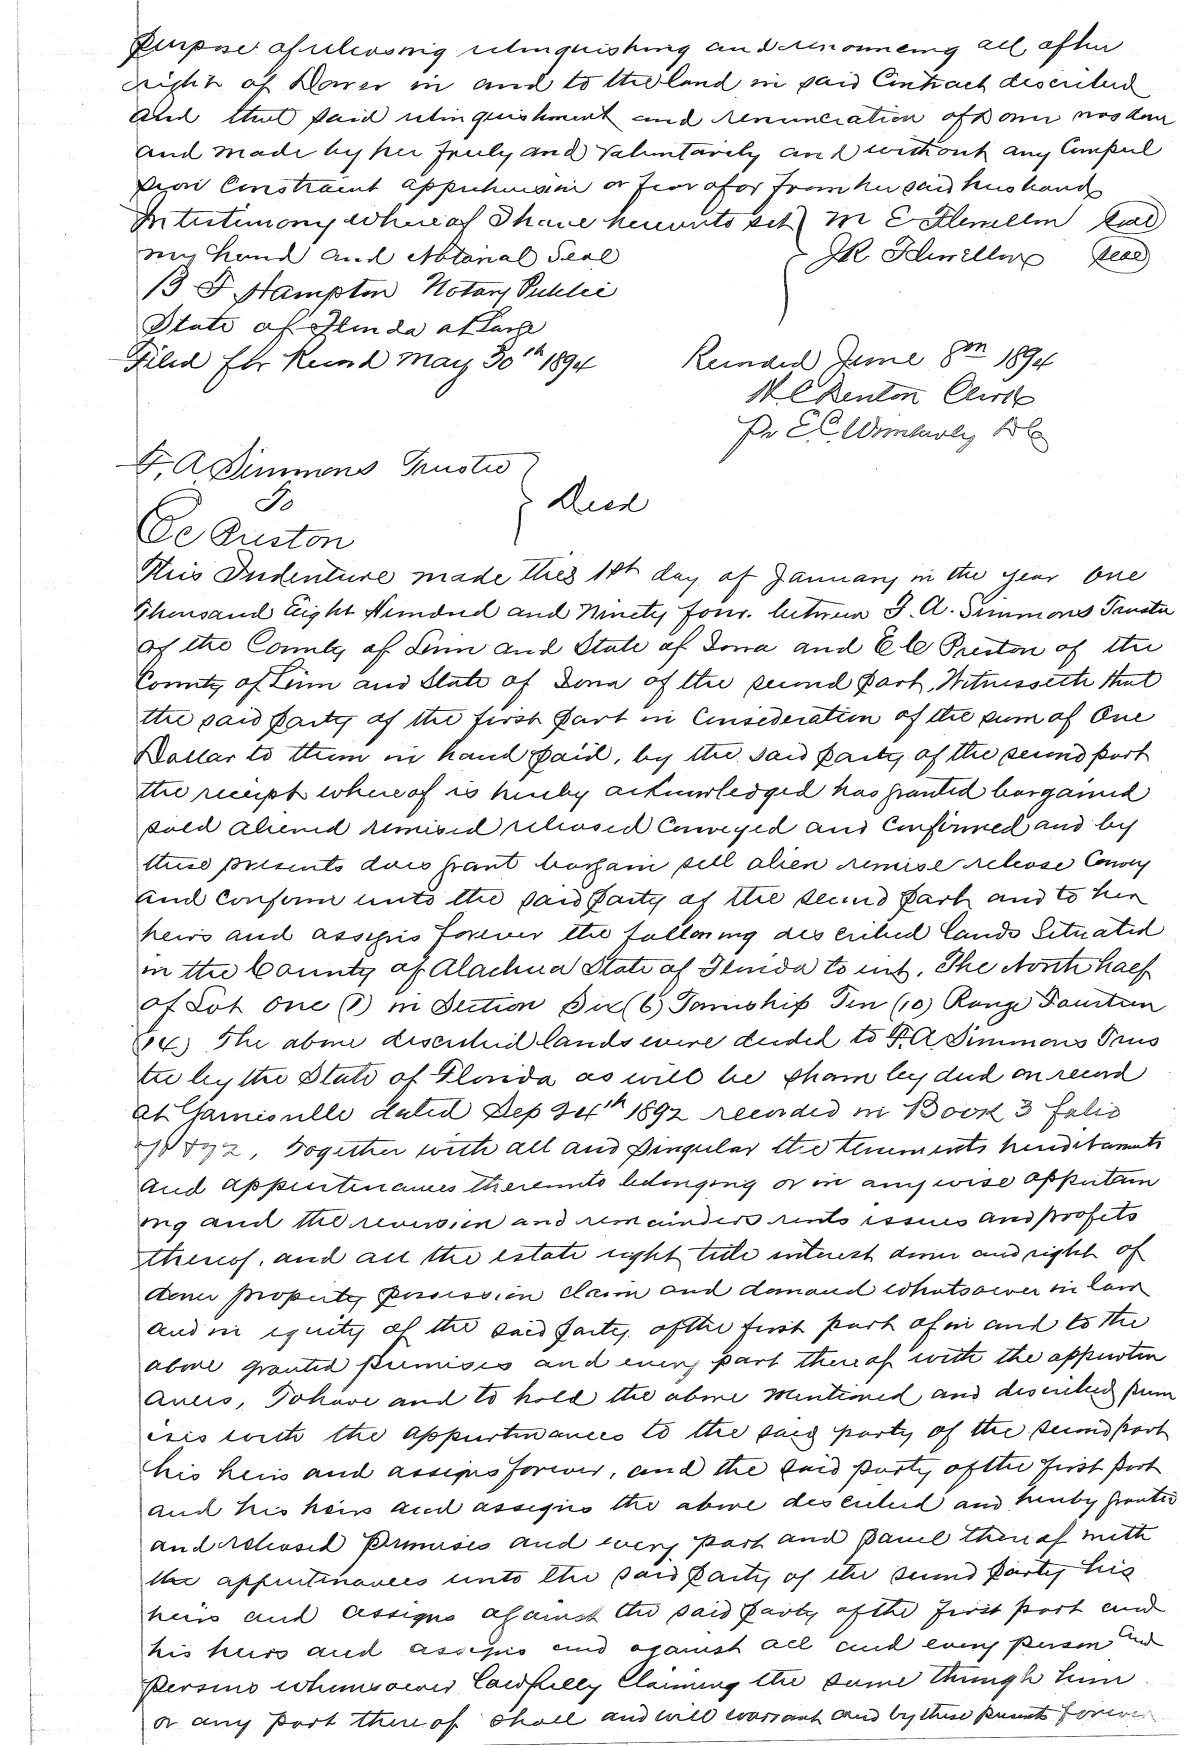 purpose of releasing relinquishing and renouncing all of her
right of Dower in and to the land in said Contract described
and that said relinquishment and renunciation of Dower was done
and made by her freely and voluntarily and without any Compul
sion Constraint apprehension or fear of or from her said husband
In testimony whereof I have hereunto set } M E Flewellen (seal)
my hand and Notarial Seal J R Flewellen (seal)
B F Hampton Notary Public
State of Florida at Large
Filed for Record May 30th 1894 Recorded June 8th 1894
Denton Clerk
Pr E.C. Wimberly D C
F. A Simmons Trustee
To } Deed
E C Preston
This Indenture made this 1st day of January in the year One
Thousand Eight Hundred and Ninety four. between F. A. Simmons Trustee
of the County of Linn and State of Iowa and E C Preston of the
County of Linn and State of Iowa of the second part, Witnesseth that
the said party of the first part in Consideration of the sum of One
Dollar to them in hand paid, by the said party of the second part
the receipt whereof is hereby acknowledged has granted bargained
sold aliened remised released Conveyed and Confirmed and by
these presents does grant bargain sell alien remise release Convey
and Confirm unto the said party of the second part and to her
heirs and assigns forever the following described lands Situated
in the County of Alachua State of Florida to wit, The North half
of Lot One (1) in Section Six (6) Township Ten (10) Range Fourteen
(14) The above described lands were deeded to F. A. Simmons Trus
tee by the State of Florida as will be shown by deed on record
at Gainesville dated Sep 24th 1892 recorded in Book 3 folio
Together with all and Singular the tenements hereditaments
and appurtenances thereunto belonging or in anywise appertain
ing and the reversion and remainders rents issues and profits
thereof, and all the estate right title interest dower and right of
dower property possession claim and demand whatsoever in law
and in equity of the said party of the first part of in and to the
above granted premises and every part thereof with the appurten
ances, To have and to hold the above mentioned and described prem
ises with the appurtenances to the said party of the second part
his heirs and assigns forever, and the said party of the first part
and his heirs and assigns the above described and hereby granted
and released premises and every part and parcel thereof with
the appurtenances unto the said party of the second party his
heirs and assigns against the said party of the first part and
his heirs and assigns and against all and every person and
persons whomsoever lawfully Claiming the same through him
or any part thereof shall and will warrant and by these presents forever